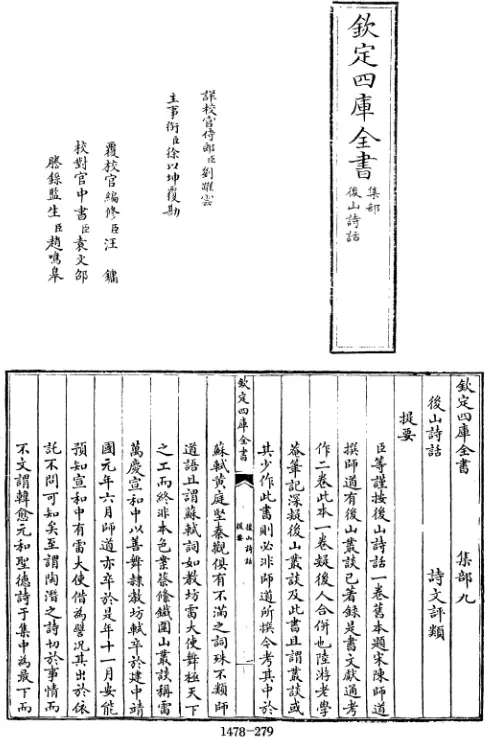 欽定四庫全書
集部
後山詩話
詳校官侍郎臣劉躍雲
主事銜臣徐以坤覆勘
覆校官編修臣汪鏞
校對官中書臣袁文邵
謄錄監生臣趙鳴皋
欽定四庫全書 集部九
後山詩話 詩文評類
提要
臣等謹按後山詩話一卷舊本題宋陳師道
撰師道有後山叢談已著錄是書文獻通考
作二卷此本一卷疑後人合併也陸游老學
菴筆記深疑後山叢談及此書且謂叢談或
其少作此書則必非師道所撰今考其中於
欽定四庫全書
後山詩話
提要
蘇軾黃庭堅秦觀俱有不滿之詞殊不類師
道語且謂蘇軾詞如教坊雷大使舞極天下
之工而終非本色案蔡絛鐵圍山叢談稱雷
萬慶宣和中以善舞隸教坊軾卒於建中靖
國元年六月師道亦卒於是年十一月安能
預知宣和中有雷大使借為譬況其出於依
託不問可知矣至謂陶潛之詩切於事情而
不文謂韓愈元和聖德詩于集中為最下而
1478-279